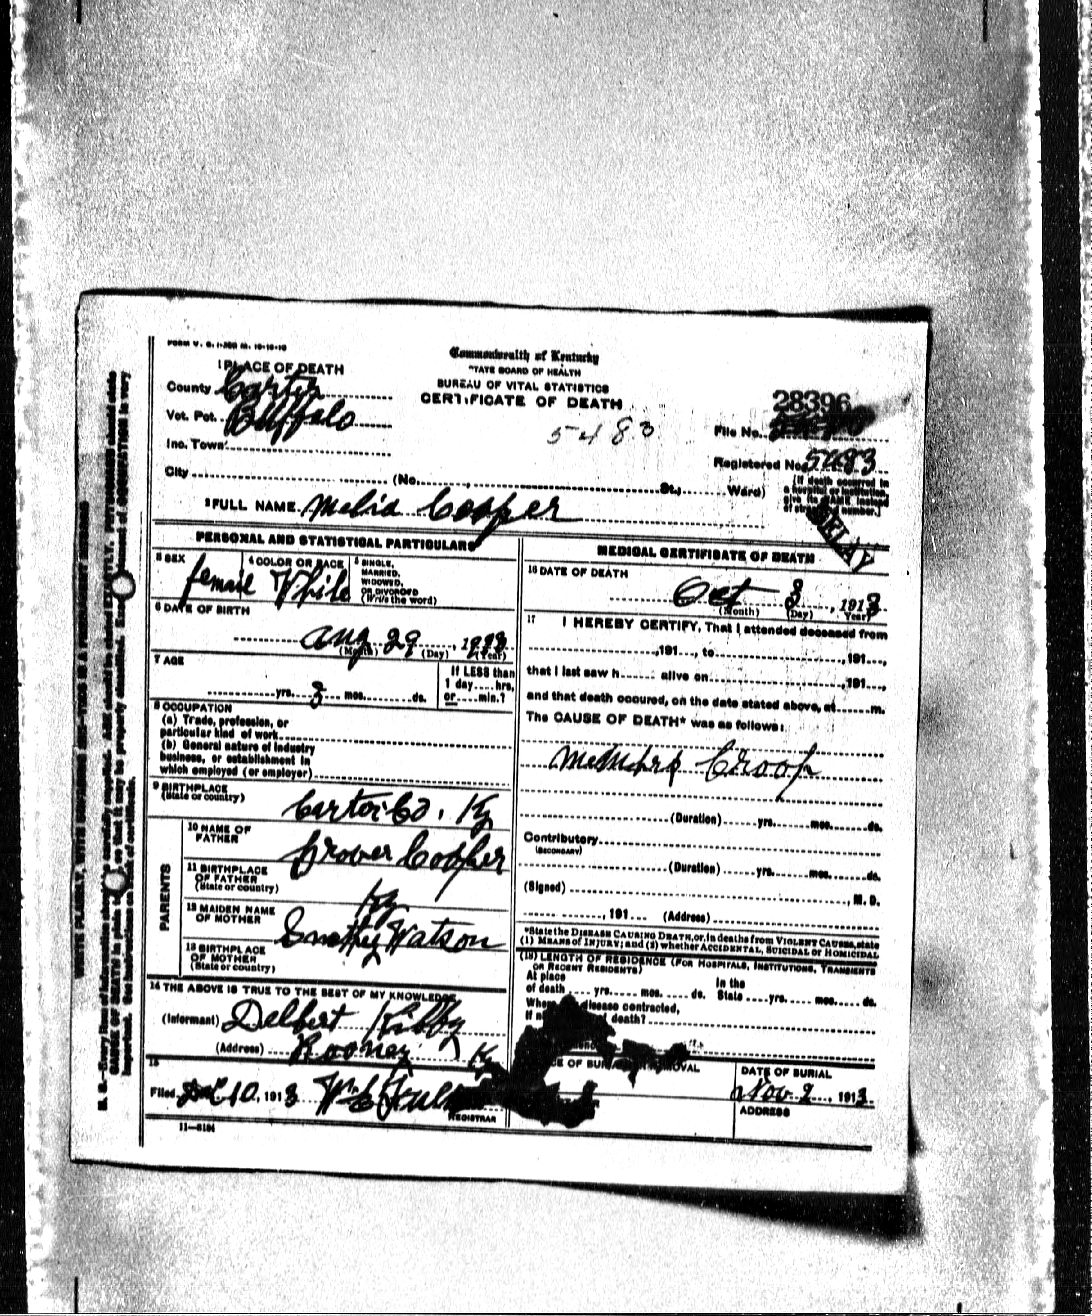 FORM V. S. 1-
Commonwealth of Kentucky
STATE BOARD OF HEALTH
BUREAU OF VITAL STATISTICS
CERTIFICATE OF DEATH
1 PLACE OF DEATH
County Carter
Vot. Pct. Buffalo
Inc. Town
City (No. St., Ward)
5483
28396
File No.
Registered No. 5483
(If death occurred in a hospital or institution, give its NAME instead of street and number.)
DELAY
2 FULL NAME Melia Cooper
PERSONAL AND STATISTICAL PARTICULARS
3 SEX female
4 COLOR OR RACE White
5 SINGLE, MARRIED, WIDOWED, OR DIVORCED (Write the word)
6 DATE OF BIRTH
Aug 29, 1
(Month) (Day) (Year)
7 AGE
yrs. 3 mos. ds.
If LESS than 1 day hrs. or min.?
8 OCCUPATION
(a) Trade, profession, or
particular kind of work
(b) General nature of industry
business, or establishment in
which employed (or employer)
9 BIRTHPLACE
(State or country) Carter Co. Ky
PARENTS
10 NAME OF FATHER Grover Cooper
11 BIRTHPLACE OF FATHER (State or country) Ky
12 MAIDEN NAME OF MOTHER Watson
13 BIRTHPLACE OF MOTHER (State or country)
14 THE ABOVE IS TRUE TO THE BEST OF MY KNOWLEDGE
(Informant) Delbert Kibby
(Address) Rooney, Ky
15
Filed 10, 1913
REGISTRAR
11—5184
MEDICAL CERTIFICATE OF DEATH
16 DATE OF DEATH
Oct 3, 1913
(Month) (Day) (Year)
17 I HEREBY CERTIFY, That I attended deceased from
, 191 , to , 191 ,
that I last saw h alive on , 191 ,
and that death occured, on the date stated above, at m.
The CAUSE OF DEATH* was as follows:
Croop
(Duration) yrs. mos. ds.
Contributory
(SECONDARY)
(Duration) yrs. mos. ds.
(Signed) , M. D.
, 191 (Address)
*State the DISEASE CAUSING DEATH, or, in deaths from VIOLENT CAUSES, state
(1) MEANS OF INJURY; and (2) whether ACCIDENTAL, SUICIDAL or HOMICIDAL
(18) LENGTH OF RESIDENCE (FOR HOSPITALS, INSTITUTIONS, TRANSIENTS
OR RECENT RESIDENTS)
At place of death yrs. mos. ds. In the State yrs. mos. ds.
Where disease contracted,
If death?
OF BURIAL OR REMOVAL
DATE OF BURIAL
Nov 2 1913
ADDRESS